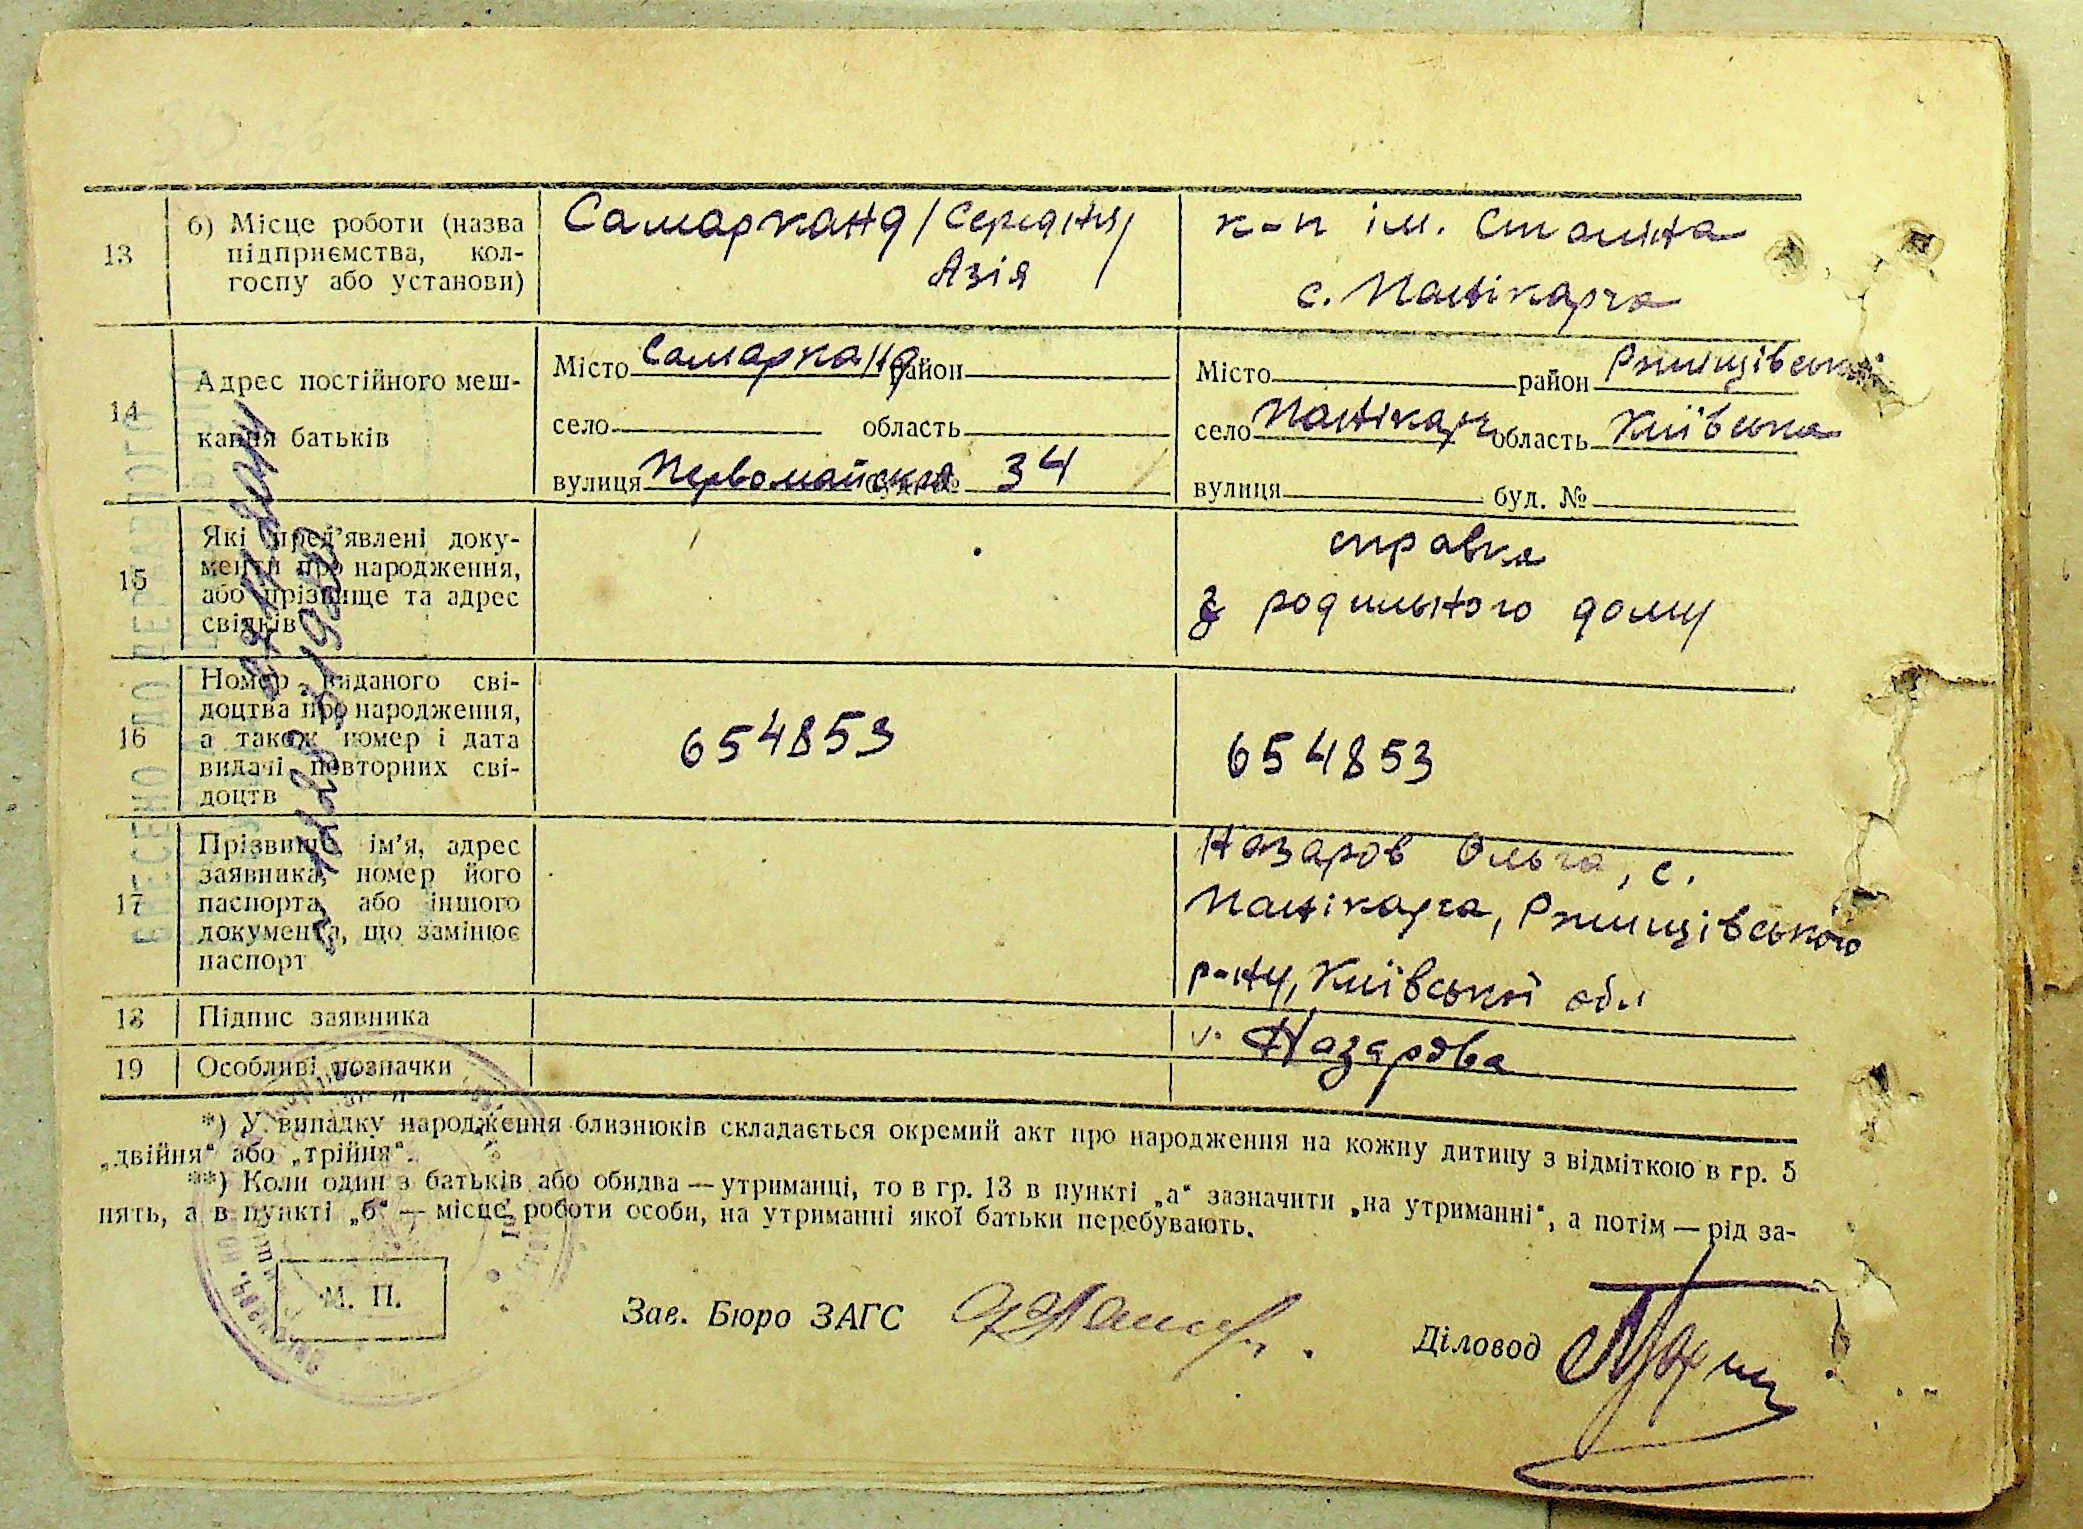 13
б) Місце роботи (назва
підприємства, кол-
госпу або установи)
Самарканд /Середня/
Азія
к-п ім. Сталіна
с. Панікарча
14
Адрес постійного меш-
кання батьків
Місто Самарканд район
село область
вулиця Первомайская 34
Місто район Ржищівський
село Панікарч область Київська
вулиця буд. №
15
Які пред'явлені доку-
менти про народження,
або прізвище та адрес
свідків
справка
з родильного дому
16
Номер виданого сві-
доцтва про народження,
а також номер і дата
видачі повторних сві-
доцтв
654853
654853
17
Прізвище, ім'я, адрес
заявника, номер його
паспорта або іншого
документа, що замінює
паспорт
Назаров Ольга, с.
Панікарча, Ржищівського
р-ну, Київської обл
18
Підпис заявника
Назарова
19
Особливі позначки
*) У випадку народження близнюків складається окремий акт про народження на кожну дитину з відміткою в гр. 5
„двійня“ або „трійня“.
**) Коли один з батьків або обидва — утриманці, то в гр. 13 в пункті „а“ зазначити „на утриманні“, а потім — рід за-
нять, а в пункті „б“ — місце роботи особи, на утриманні якої батьки перебувають.
М. П.
Зав. Бюро ЗАГС
Діловод